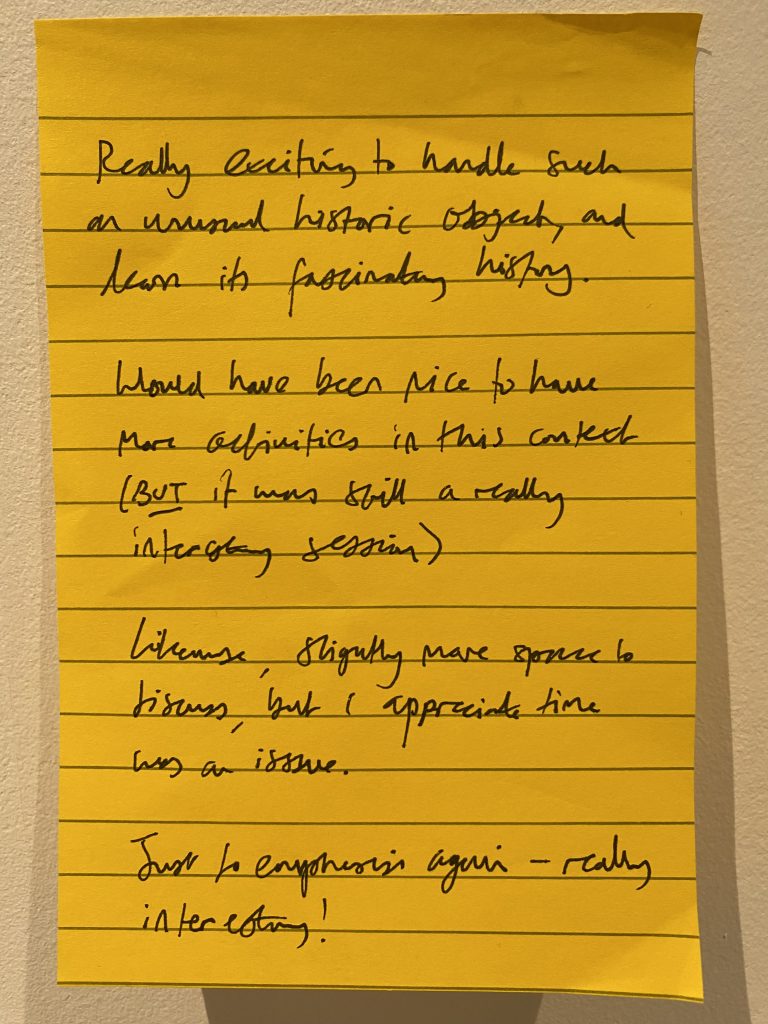 Really exciting to handle such
an unusual historic object, and
learn its fascinating history.
Would have been nice to have
more definitics in this context
(BUT it was still a really
interesting session)
Likewise, slightly more space to
discuss, but I appreciate time
was an issue.
Just to emphasis again – really
interesting!